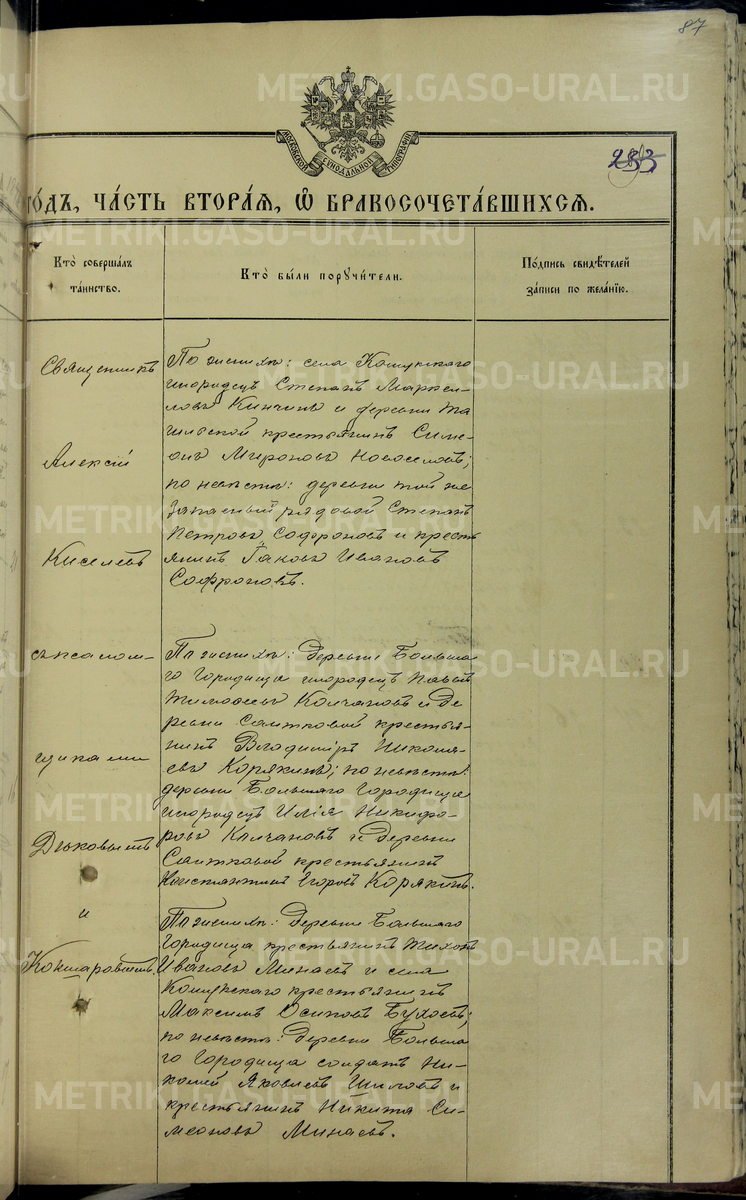 87
МОСКОВСКОЙ СѴНОДАЛЬНОЙ ТИПОГРАФІИ
253
ГО́ДЪ, ЧА́СТЬ ВТОРА́Я, Ѽ БРАКОСОЧЕТА́ВШИХСЯ.
Кто̀ соверша́лъ
та́инство.
Кто̀ бы́ли поручи́тели.
По́дпись свидѣ́телей
за́писи по жела́нїю.
Священникъ
Алексій
Киселевъ
съ псалом-
щиками
Дьяковымъ
и
Кокшаровымъ.
По женихѣ: села Кошукскаго
инородецъ Степанъ Маркел-
ловъ Кинчинъ и деревни Та-
ильской крестьянинъ Симе-
онъ Мироновъ Новоселовъ;
по невѣстѣ: деревни той же
запасный рядовой Степанъ
Петровъ Софроновъ и кресть
янинъ Іаковъ Ивановъ
Софроновъ.
По женихѣ: Деревни Больша-
го Городища инородецъ Павелъ
Тимофеевъ Колчановъ и Де
ревни Саитковой крестья-
нинъ Владиміръ Николa-
евъ Корякинъ; по невѣстѣ:
деревни Большаго Городища
инородецъ Илія Никифо-
ровъ Колчановъ и Деревни
Саитковой крестьянинъ
Константинъ Егоровъ Корякинъ.
По женихѣ: Деревни Большаго
Городища крестьянинъ Тихонъ
Ивановъ Минаевъ и села
Кошукскаго крестьянинъ
Максимъ Осиповъ Буховъ;
по невѣстѣ: Деревни Больша
го Городища солдатъ Ни-
колай Яковлевъ Шиловъ и
крестьянинъ Никита Си-
меоновъ Минаевъ.
METRIKI.GASO-URAL.RU